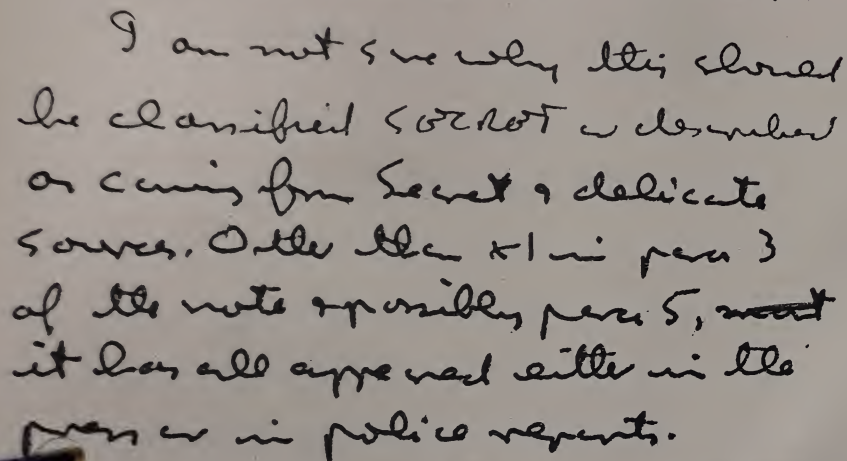 I am not sure why this should
be classified SECRET or described
as coming from Secret & delicate
sources. Other than x1 in para 3
of the note & possibly para 5,
it has all appeared either in the
press or in police reports.